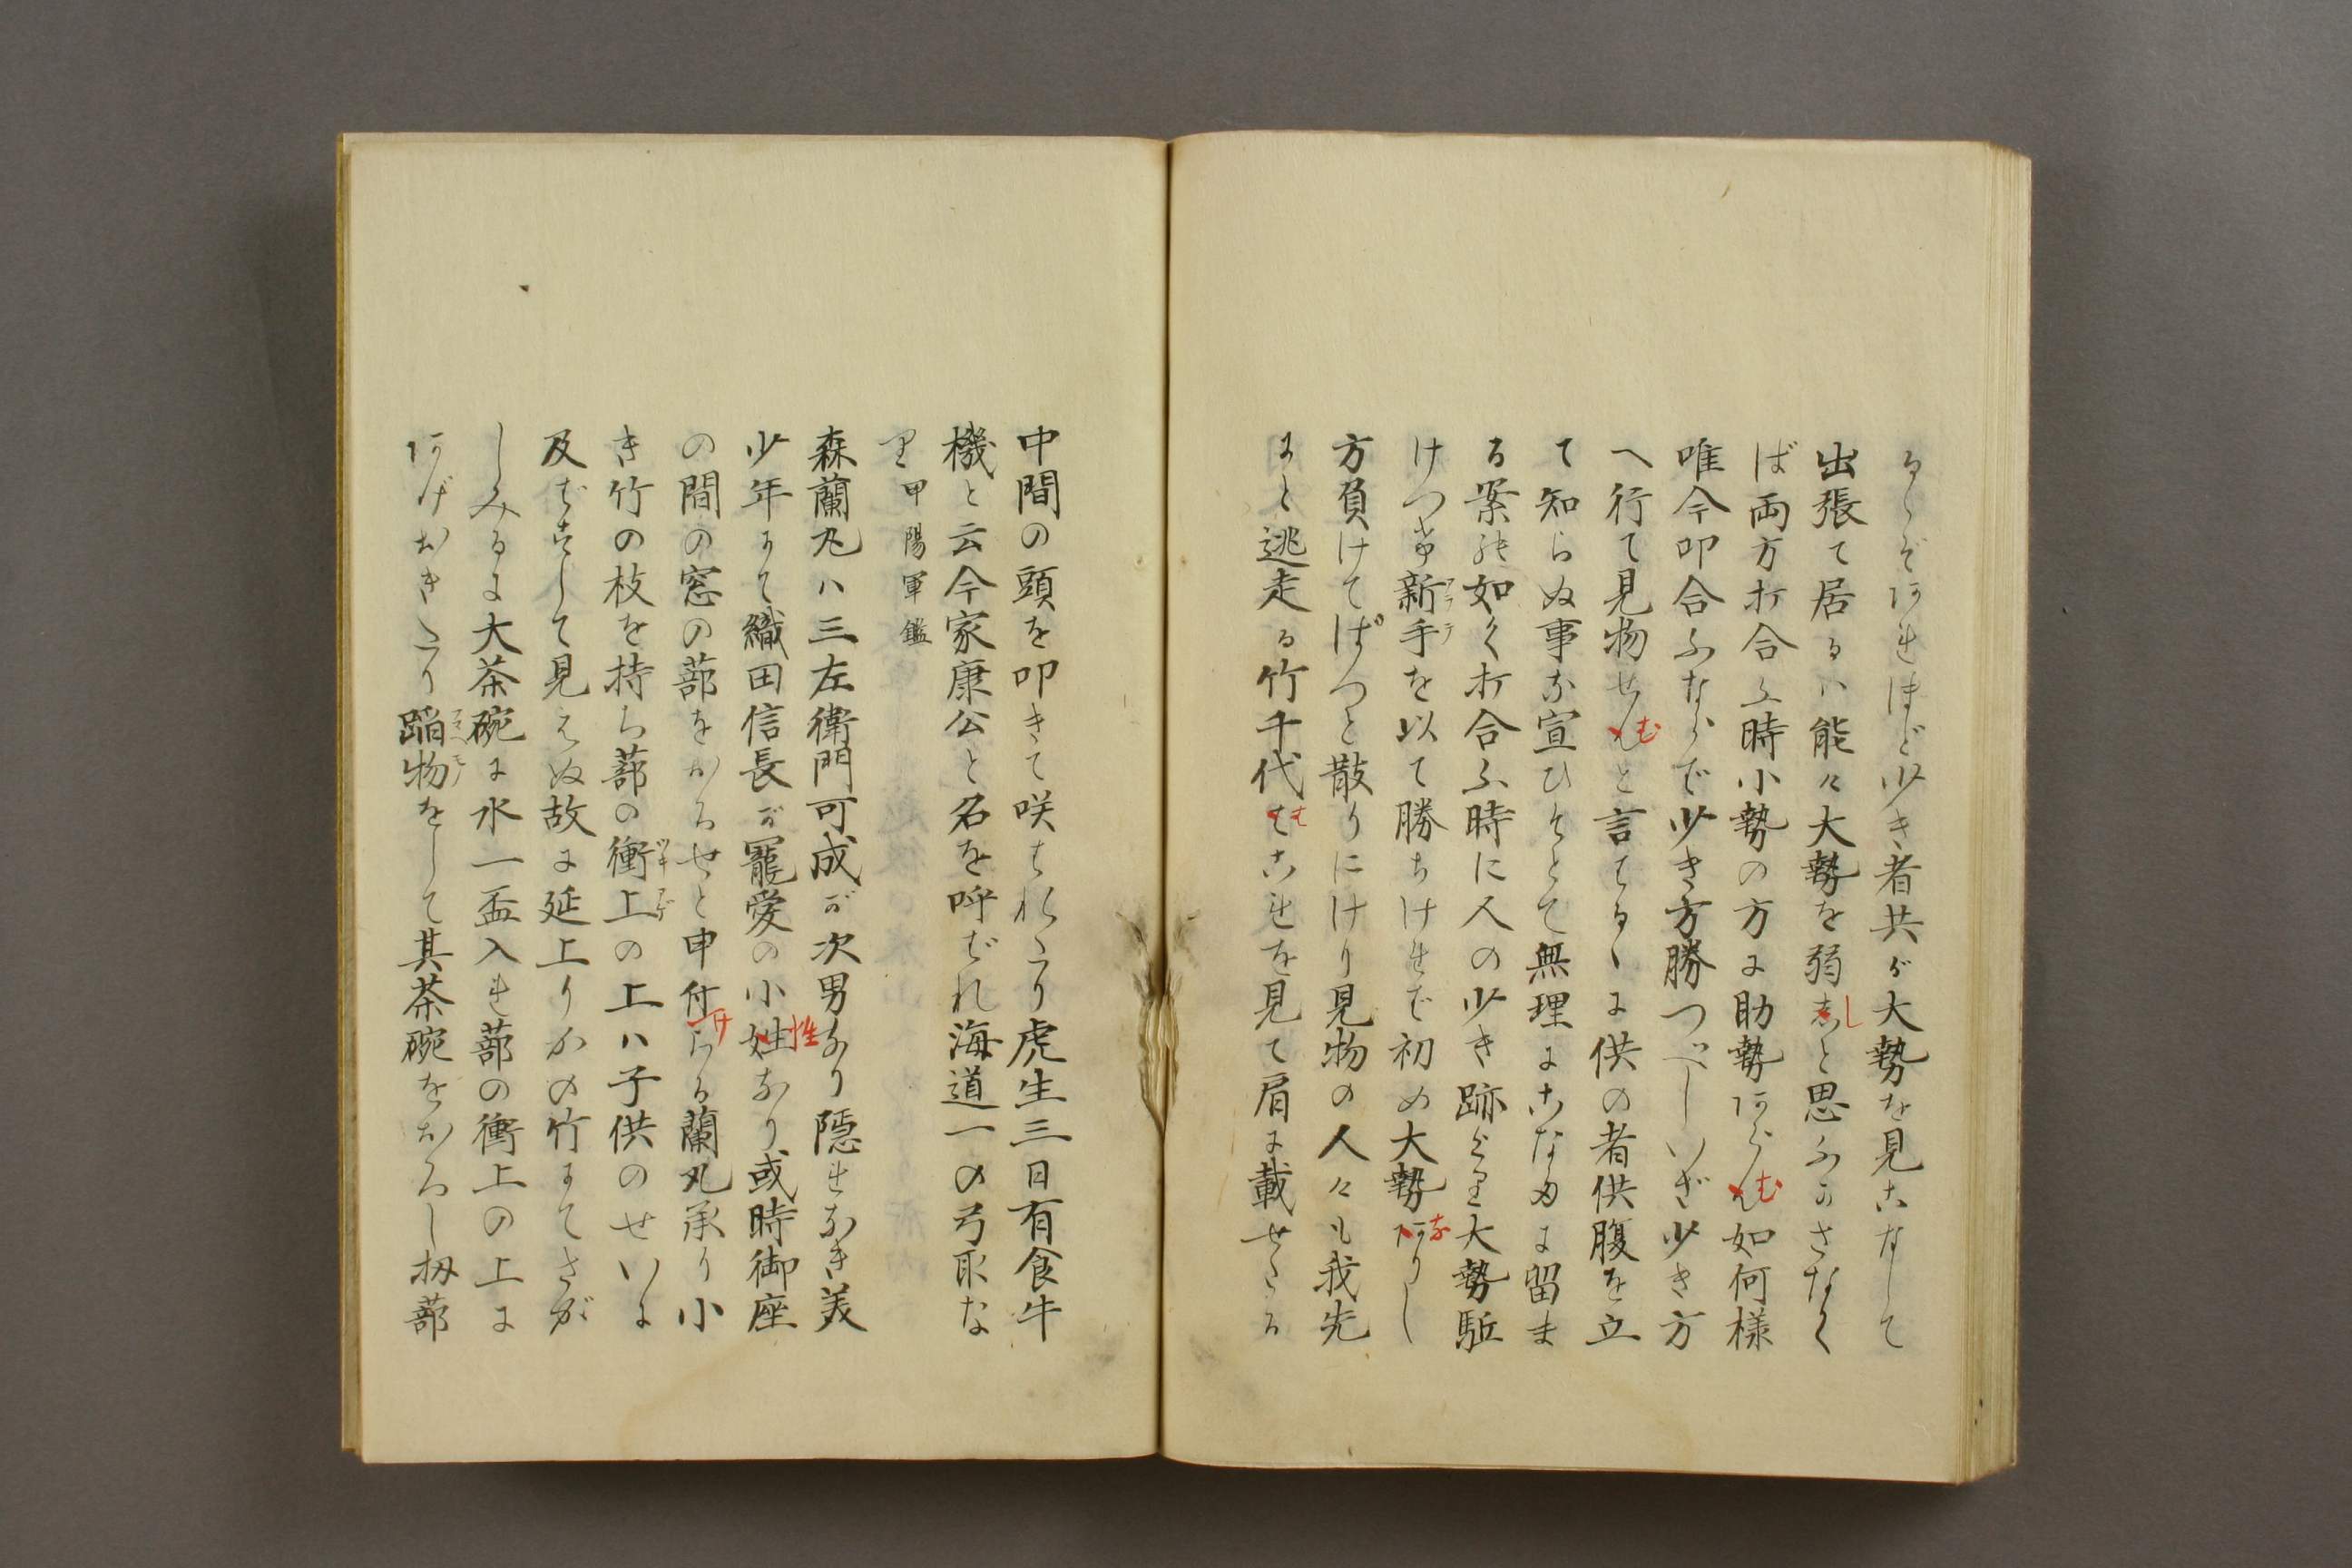 るゝぞあれほど少き者共が大勢を見こなして
出張て居るハ能々大勢を弱しと思ふかさなく
ば両方打合ふ時小勢の方に助勢あらむ如何様
唯今叩合ふならで少き方勝つべしいざ少き方
へ行て見物せむと言はるゝに供の者供腹を立
て知らぬ事な宣ひそとて無理にこなたに留ま
る案の如く打合ふ時に人の少き跡より大勢駈
けつけ新手を以て勝ちければ初め大勢なりし
アラテ
方負けてぱつと散りにけり見物の人々も我先
にと逃走る竹千代はこれを見て肩に載せたる
中間の頭を叩きて咲はれたり虎生三日有食牛
機と云今家康公と名を呼ばれ海道一の弓取な
り甲陽軍鑑
森蘭丸ハ三左衛門可成が次男なり隠れなき美
少年にて織田信長が寵愛の小姓なり或時御座
性
の間の窓の蔀をおろせと申付らる蘭丸承り小
け
き竹の枝を持ち蔀の衝上の上ハ子供のせいに
ツキアゲ
及ばずして見えぬ故に延上りかの竹にてさが
しみるに大茶碗に水一盃入れ蔀の衝上の上に
あげおきたり蹈物をして其茶碗をおろし扨蔀
フミモノ